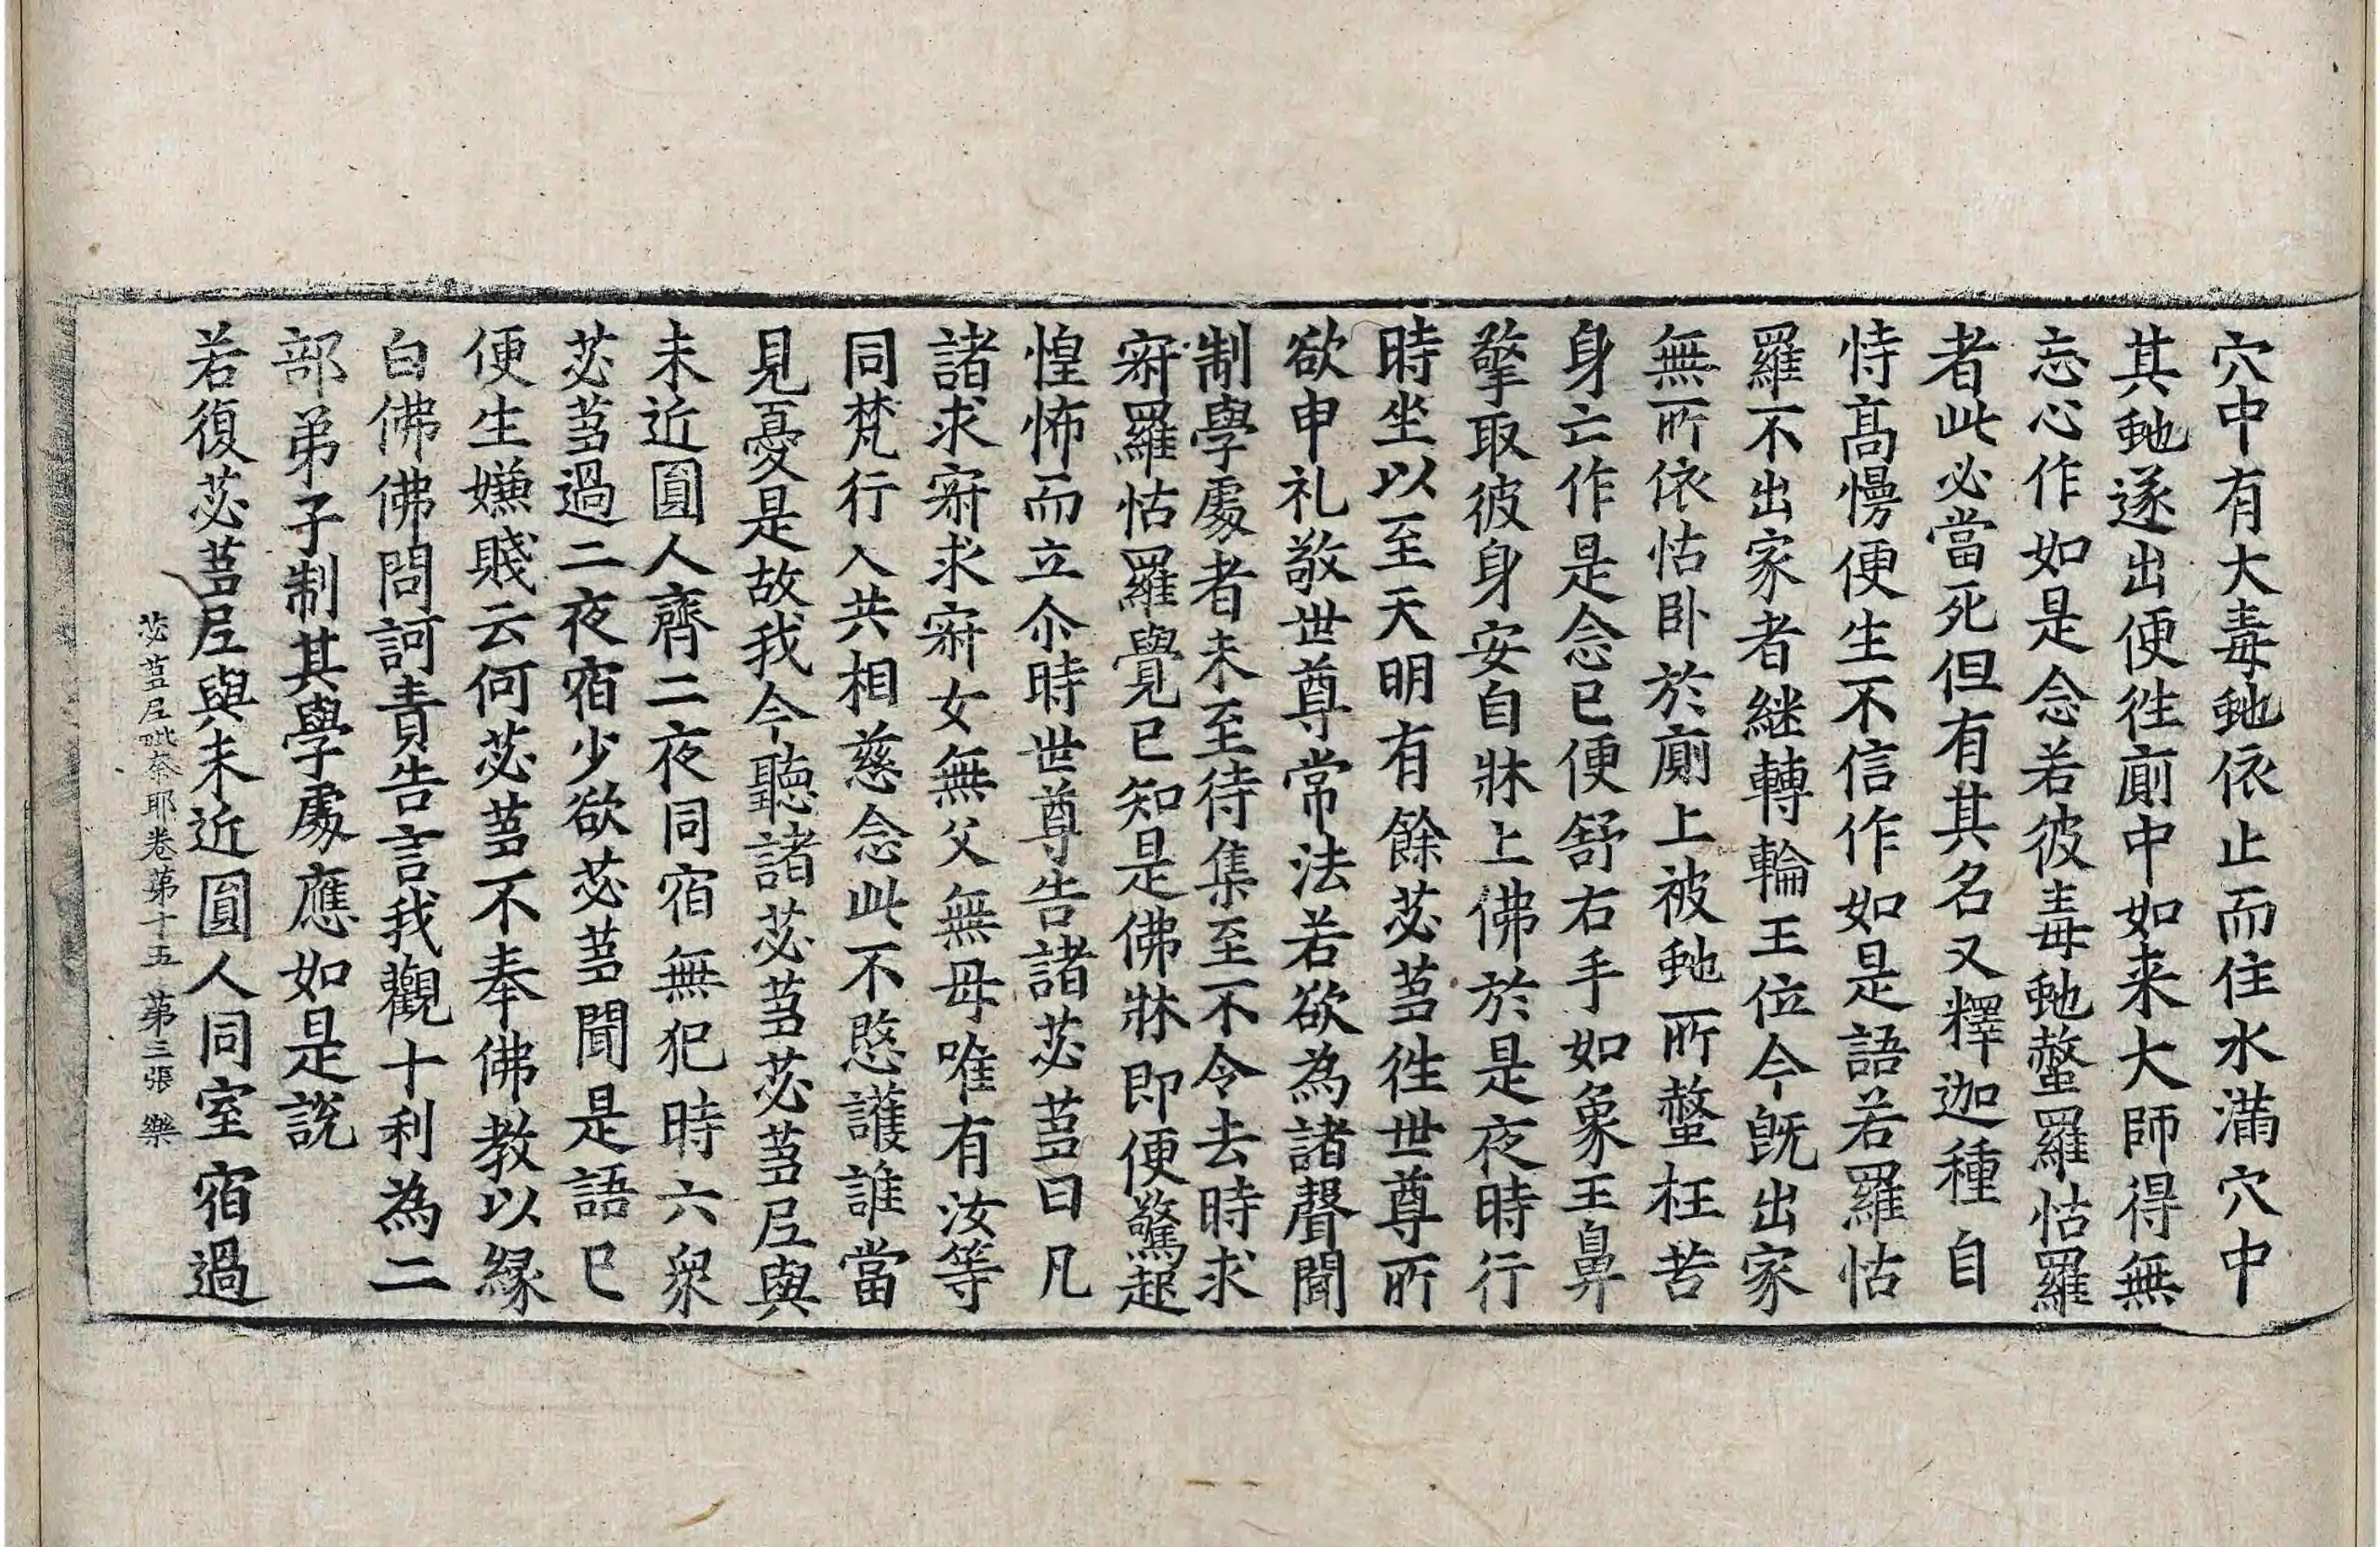 穴中有大毒虵依止而住水滿穴中
其虵遂出便徃廁中如来大師得無
忘心作如是念若彼毒虵螫羅怙羅
者此必當死但有其名又釋迦種自
恃髙慢便生不信作如是語若羅怙
羅不出家者継轉輪王位今旣出家
無所依怙卧於廁上被虵所螫枉苦
身亡作是念已便舒右手如象王鼻
擎取彼身安自牀上佛於是夜時行
時坐以至天明有餘苾蒭徃世尊所
欲申礼敬世尊常法若欲為諸聲聞
制學處者未至待集至不令去時求
寂羅怙羅覺已知是佛牀即便驚起
惶怖而立尒時世尊告諸苾蒭曰凡
諸求寂求寂女無父無母唯有汝等
同梵行人共相慈念此不愍護誰當
見憂是故我今聽諸苾蒭苾蒭尼與
未近圓人齊二夜同宿無犯時六衆
苾蒭過二夜宿少欲苾蒭聞是語已
便生嫌賤云何苾蒭不奉佛教以緣
白佛佛問訶責告言我觀十利為二
部弟子制其學處應如是説
若復苾蒭尼與未近圓人同室宿過
苾蒭尼毗奈耶卷第十五 第三張 樂